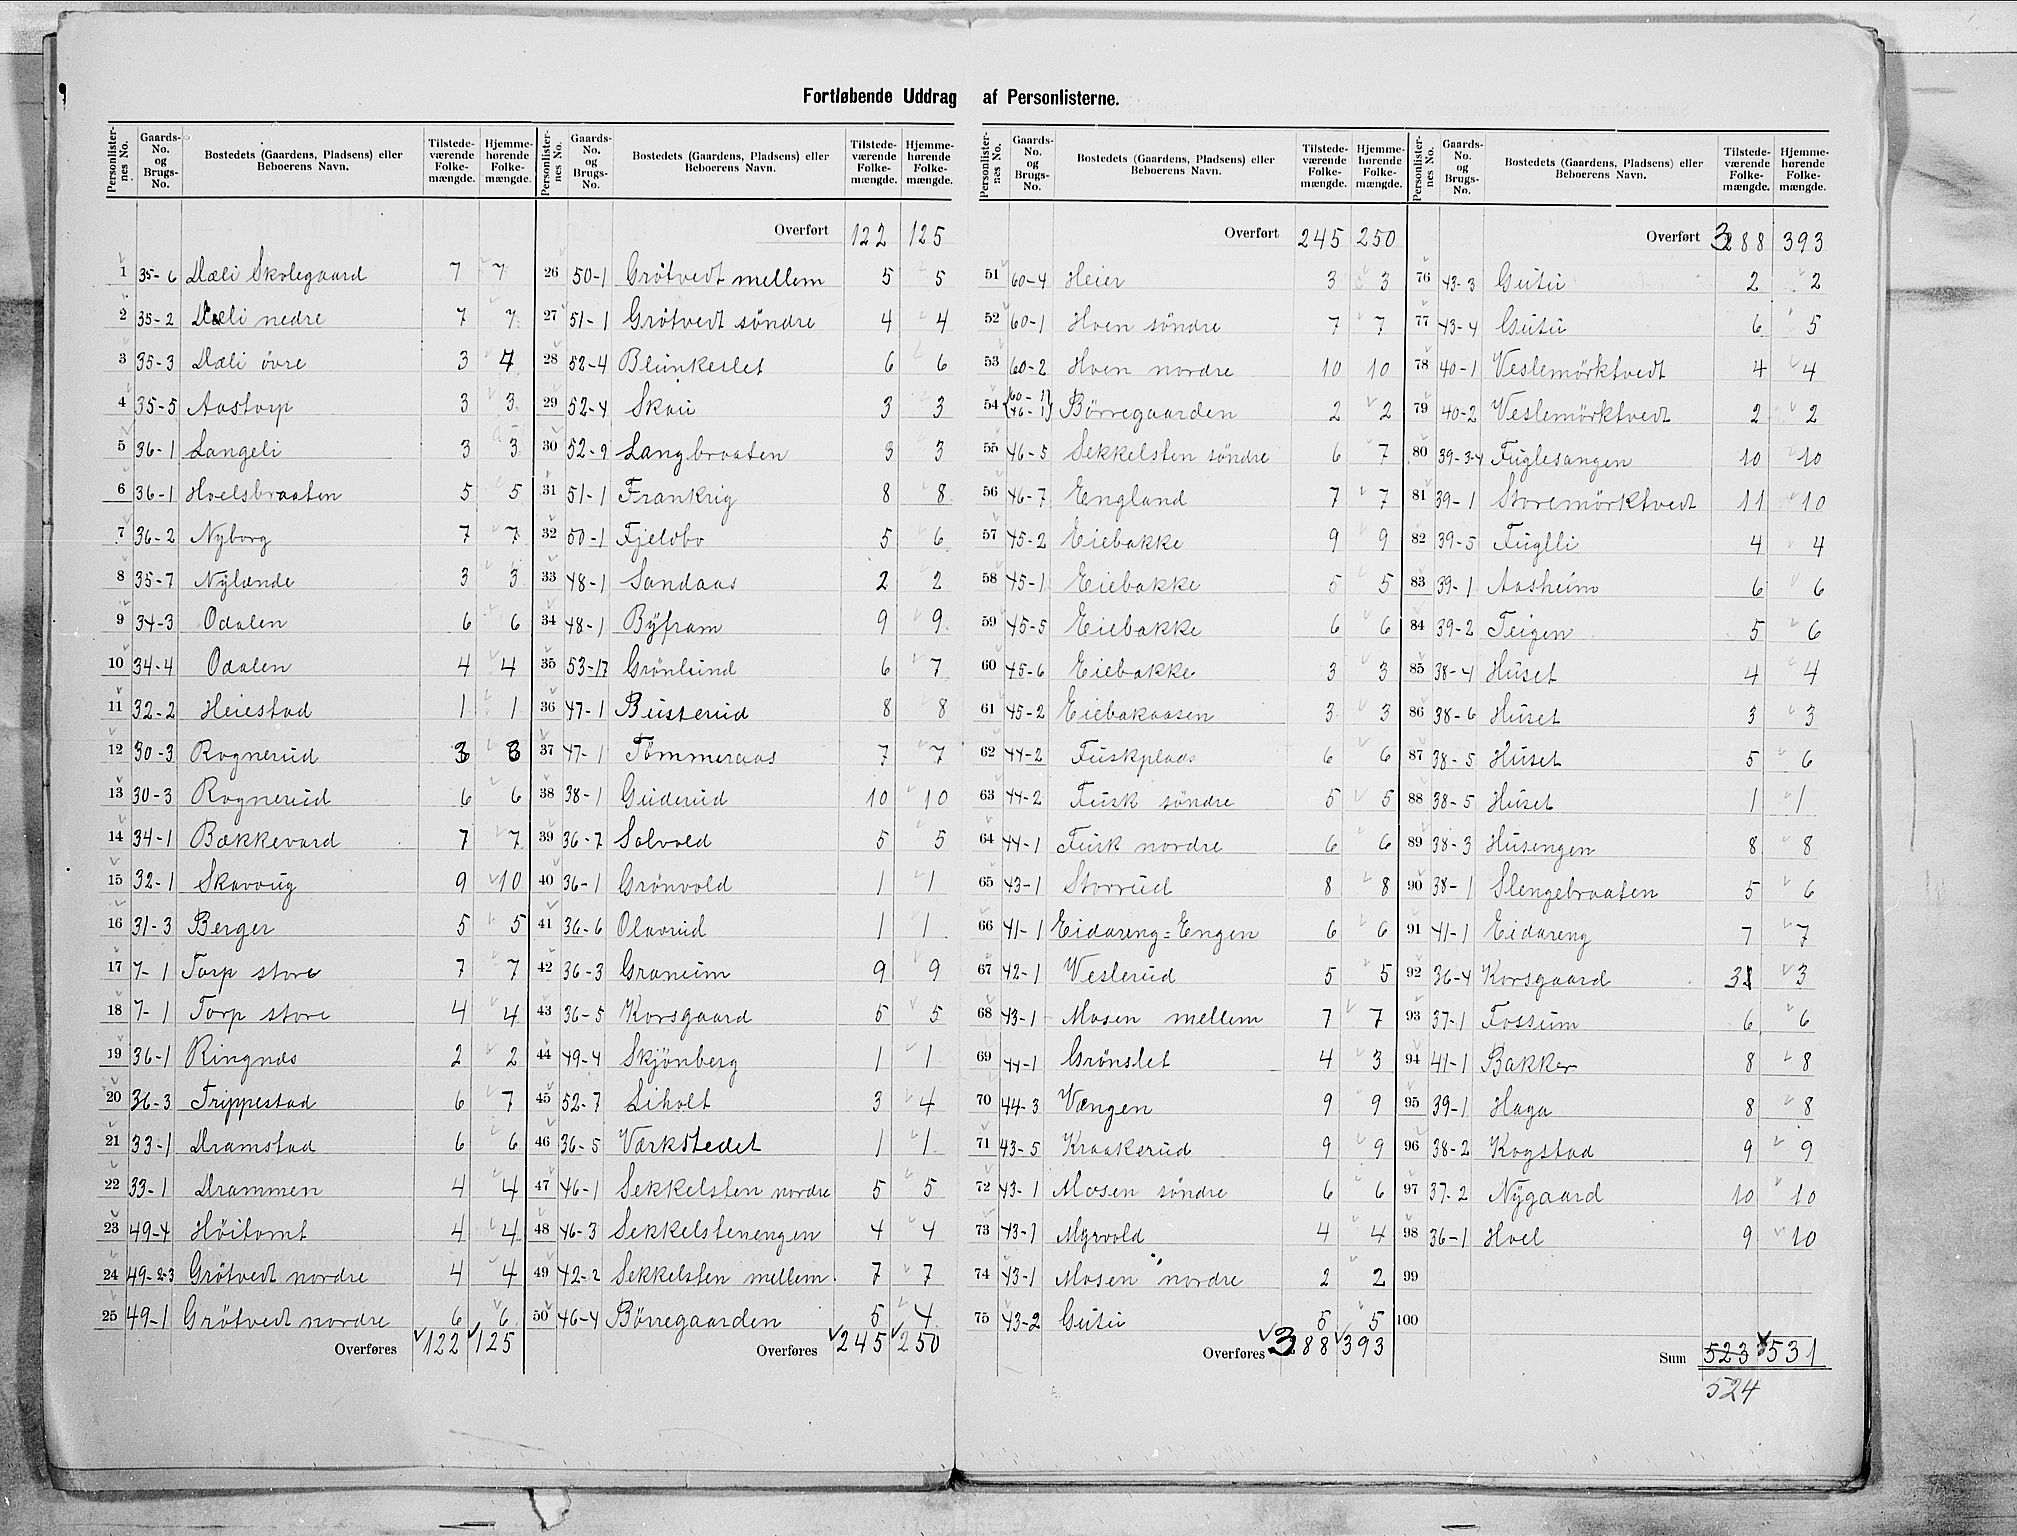 Fortløbende Uddrag af Personlisterne.
Personlisternes No. | Gaards-No. og Brugs-No. | Bostedets (Gaardens, Pladsens) eller Beboerens Navn. | Tilstedeværende Folkemængde. | Hjemmehørende Folkemængde.
1 35-6 Dæli Skolegaard 7 7
2 35-2 Dæli nedre 7 7
3 35-3 Dæli övre 3 4
4 35-5 Aastorp 3 3
5 36-1 Langeli 3 3
6 36-1 Hoelsbraaten 5 5
7 36-2 Nyborg 7 7
8 35-7 Nylænde 3 3
9 34-3 Odalen 6 6
10 34-4 Odalen 4 4
11 32-2 Heiestad 1 1
12 30-3 Rognerud 3 3
13 30-3 Rognerud 6 6
14 34-1 Bækkevard 7 7
15 32-1 Skavoug 9 10
16 31-3 Berger 5 5
17 7-1 Torp store 7 7
18 7-1 Torp store 4 4
19 36-1 Ringnæs 2 2
20 36-3 Trippestad 6 7
21 33-1 Dramstad 6 6
22 33-1 Drammen 4 4
23 49-4 Höitomt 4 4
24 49-2-3 Grötvedt nordre 4 4
25 49-1 Grötvedt nordre 6 6
Overføres 122 125
Personlisternes No. | Gaards-No. og Brugs-No. | Bostedets (Gaardens, Pladsens) eller Beboerens Navn. | Tilstedeværende Folkemængde. | Hjemmehørende Folkemængde.
Overført 122 125
26 50-1 Grötvedt mellem 5 5
27 51-1 Grötvedt söndre 4 4
28 52-4 Blunkeslet 6 6
29 52-4 Skau 3 3
30 52-9 Langbraaten 3 3
31 51-1 Frankrig 8 8
32 50-1 Fjeldbo 5 6
33 48-1 Sandaas 2 2
34 48-1 Byfram 9 9
35 53-17 Grönlund 6 7
36 47-1 Busterud 8 8
37 47-1 Tömmeraas 7 7
38 38-1 Guderud 10 10
39 36-7 Solvold 5 5
40 36-1 Grönvold 1 1
41 36-6 Olavrud 1 1
42 36-3 Graneim 9 9
43 36-5 Korsgaard 5 5
44 49-4 Skjönberg 1 1
45 52-7 Liholt 3 4
46 36-5 Værkstedet 1 1
47 46-1 Sekkelsten nordre 5 5
48 46-3 Sekkelstenengen 4 4
49 42-2 Sekkelsten mellem 7 7
50 46-4 Börregaarden 5 4
Overføres 245 250
Personlisternes No. | Gaards-No. og Brugs-No. | Bostedets (Gaardens, Pladsens) eller Beboerens Navn. | Tilstedeværende Folkemængde. | Hjemmehørende Folkemængde.
Overført 245 250
51 60-4 Heier 3 3
52 60-1 Hoen söndre 7 7
53 60-2 Hoen nordre 10 10
54 {60-1 46-1} Börregaarden 2 2
55 46-5 Sekkelsten söndre 6 7
56 46-7 England 7 7
57 45-2 Eiebakke 9 9
58 45-1 Eiebakke 5 5
59 45-5 Eiebakke 6 6
60 45-6 Eiebakke 3 3
61 45-2 Eiebakaasen 3 3
62 44-2 Fuskplads 6 6
63 44-2 Fusk söndre 5 5
64 44-1 Fusk nordre 6 6
65 43-1 Storrud 8 8
66 41-1 Eidareng=Engen 6 6
67 42-1 Veslerud 5 5
68 43-1 Mosen mellem 7 7
69 44-1 Grönslet 4 3
70 44-3 Vængen 9 9
71 43-5 Kraakerud 9 9
72 43-1 Mosen söndre 6 6
73 43-1 Myrvold 4 4
74 43-1 Mosen nordre 2 2
75 43-2 Gutu 5 5
Overføres 388 393
Personlisternes No. | Gaards-No. og Brugs-No. | Bostedets (Gaardens, Pladsens) eller Beboerens Navn. | Tilstedeværende Folkemængde. | Hjemmehørende Folkemængde.
Overført 388 393
76 43-3 Gutu 2 2
77 43-4 Gutu 6 5
78 40-1 Veslemörktvedt 4 4
79 40-2 Veslemörktvedt 2 2
80 39-3-4 Fuglesangen 10 10
81 39-1 Storemörktvedt 11 10
82 39-5 Fuglli 4 4
83 39-1 Aasheim 6 6
84 39-2 Teigen 5 6
85 38-4 Huset 4 4
86 38-6 Huset 3 3
87 38-5 Huset 5 6
88 38-5 Huset 1 1
89 38-3 Husengen 8 8
90 38-1 Slengebraaten 5 6
91 41-1 Eidareng 7 7
92 36-4 Korsgaard 3 3
93 37-1 Fossum 6 6
94 41-1 Bakker 8 8
95 39-1 Haga 8 8
96 38-2 Kogstad 9 9
97 37-2 Nygaard 10 10
98 36-1 Hoel 9 10
99
100
Sum 523 531
524